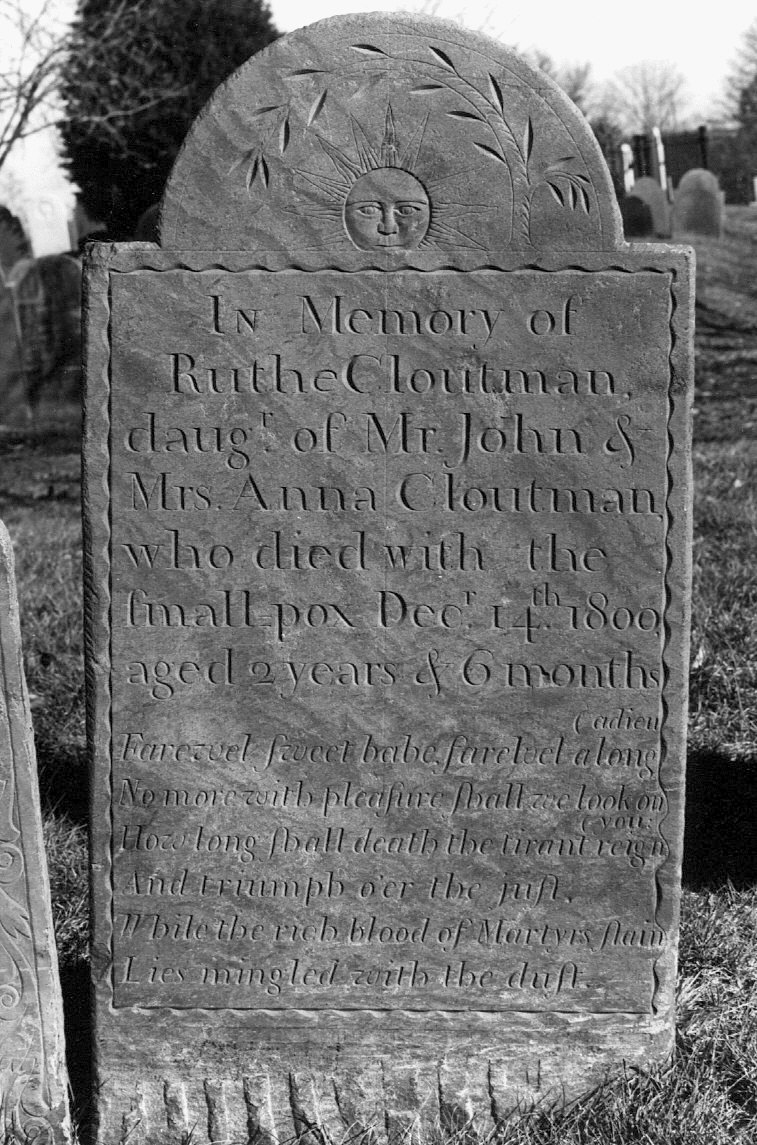 In Memory of
Ruthe Cloutman,
daugr. of Mr. John &
Mrs. Anna Cloutman
who died with the
ſmall-pox Decr. 14th. 1800,
aged 2 years & 6 months
(adieu
Farewel ſweet babe, farewel along
No more with pleaſure ſhall we look on
(you:
How long ſhall death the tirant reign
And triumph o'er the juſt,
While the rich blood of Martyrs ſlain
Lies mingled with the duſt.